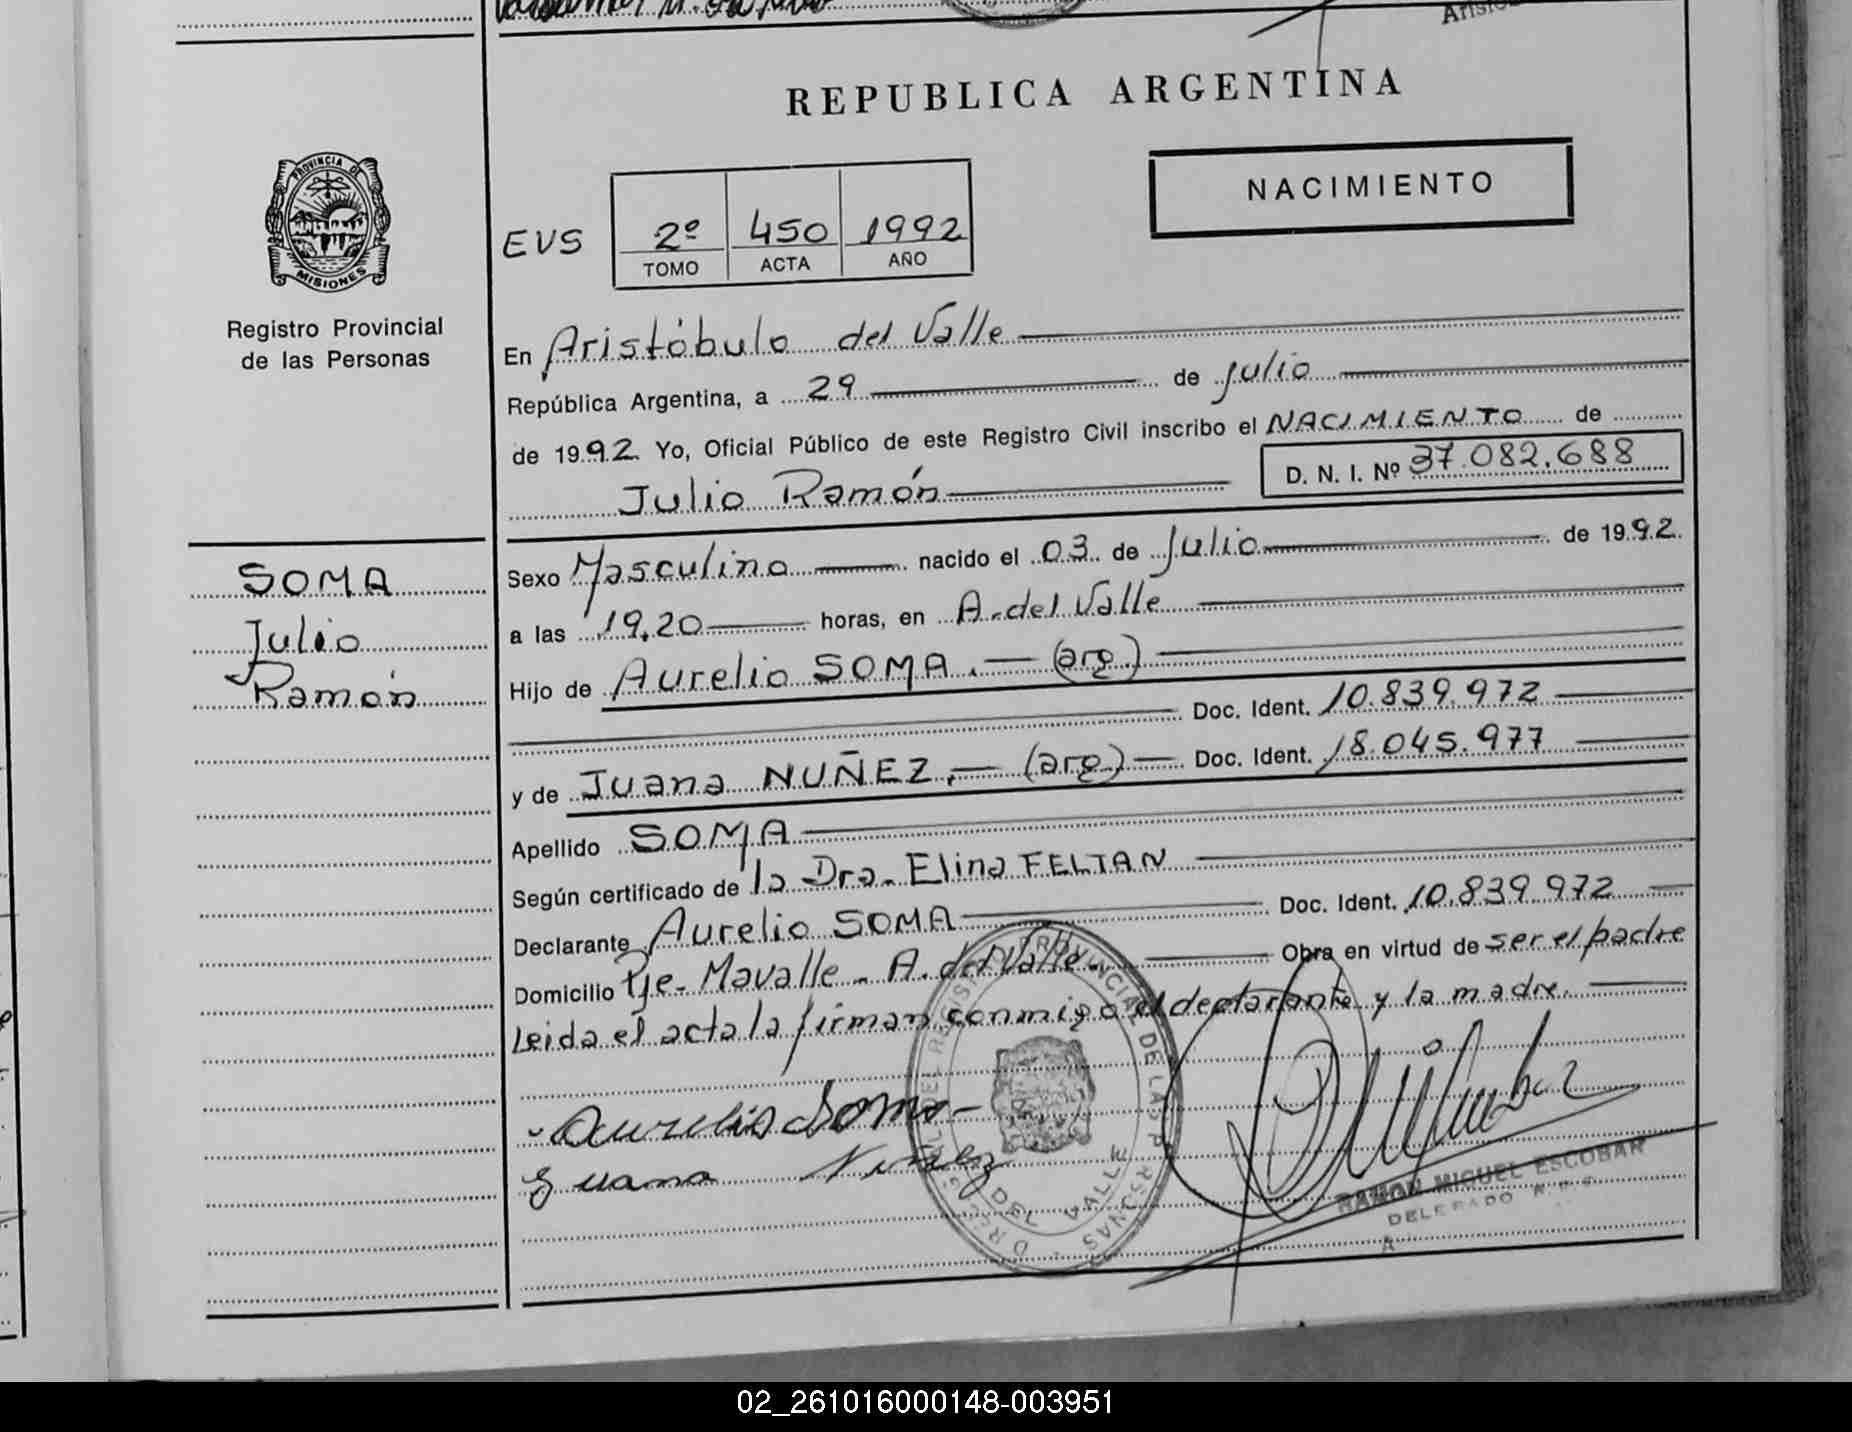 REPUBLICA ARGENTINA
PROVINCIA DE
MISIONES
Registro Provincial
de las Personas
NACIMIENTO
EVS 2º 450 1992
TOMO ACTA AÑO
En Aristóbulo del Valle
República Argentina, a 29 de Julio
de 1992. Yo, Oficial Público de este Registro Civil inscribo el NACIMIENTO de
Julio Ramón D. N. I. Nº 37.082.688
SOMA
Julio
Ramón
Sexo Masculino nacido el 03 de Julio de 1992.
a las 19,20 horas, en A. del Valle
Hijo de Aurelio SOMA.- (arg.)
Doc. Ident. 10.839.972
y de Juana NUÑEZ.- (arg.) Doc. Ident. 18.045.977
Apellido SOMA
Según certificado de la Dra. Elina FELTAN
Declarante Aurelio SOMA Doc. Ident. 10.839.972
Domicilio Pje- Mavalle - A. del Valle- Obra en virtud de ser el padre
Leida el acta la firman conmigo el declarante y la madre.
Aurelio Soma
Juana Nuñez
RAMON MIGUEL ESCOBAR
DELEGADO
DEL VALLE
02_261016000148-003951